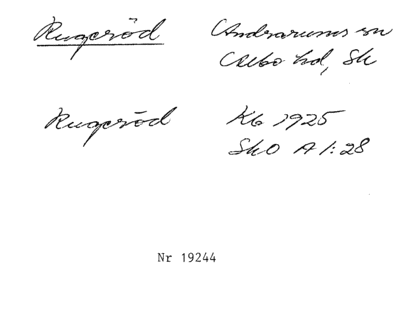 Rugeröd Andrarums sn
Albo hd, Sk
Rugeröd Kb 1925
SkO A 1:28
Nr 19244